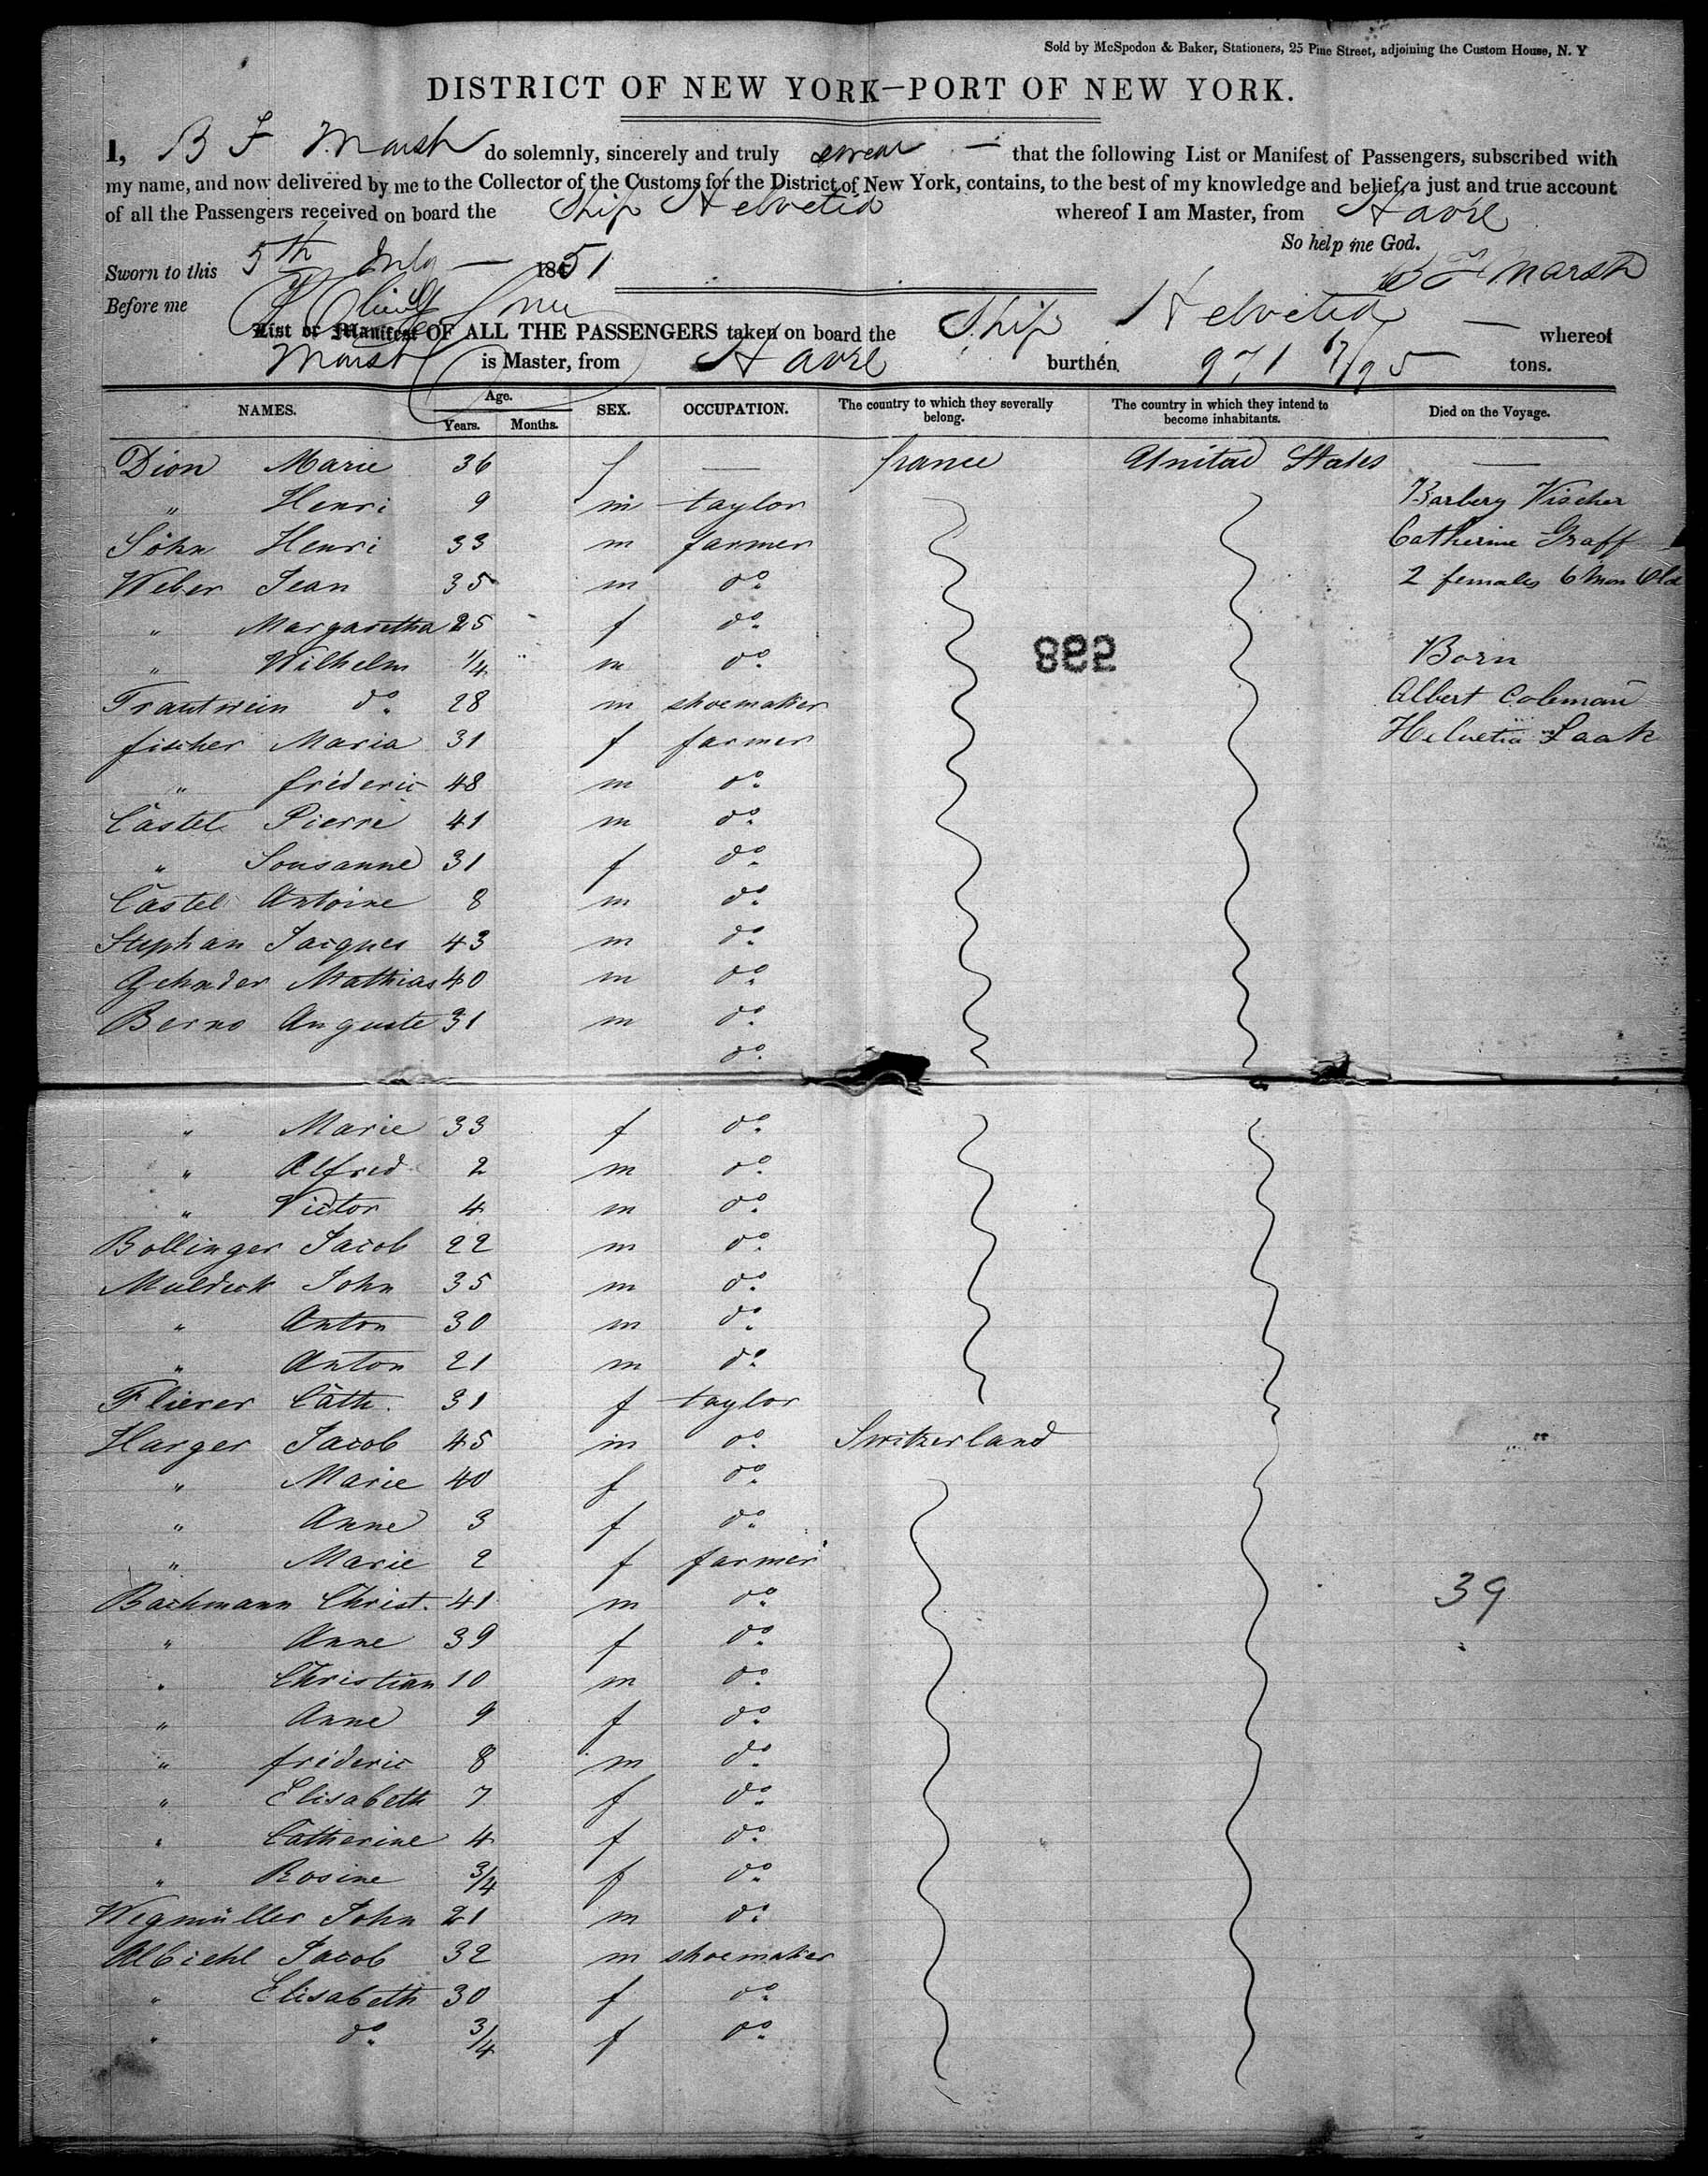 Sold by McSpedon & Baker, Stationers, 25 Pine Street, adjoining the Custom House, N. Y
DISTRICT OF NEW YORK—PORT OF NEW YORK.
I, B F Marsh do solemnly, sincerely and truly swear — that the following List or Manifest of Passengers, subscribed with
my name, and now delivered by me to the Collector of the Customs for the District of New York, contains, to the best of my knowledge and belief, a just and true account
of all the Passengers received on board the Ship Helvetia whereof I am Master, from Havre
So help me God.
Sworn to this 5th July — 1851 B F Marsh
Before me
List or Manifest OF ALL THE PASSENGERS taken on board the Ship Helvetia — whereof
Marsh is Master, from Havre burthen 971 67/95 tons.
NAMES. Age. Years. Months. SEX. OCCUPATION. The country to which they severally belong. The country in which they intend to become inhabitants. Died on the Voyage.
Dion Marie 36 f — france United States —
" Henri 9 m taylor Barbery Vischer
Söhn Henri 33 m farmer Catherine Graff
Weber Jean 35 m do 2 females 6 Mon Old
" Margaretha 25 f do
" Wilhelm 1/4 m do 882 Born
Trautwein do 28 m shoemaker Albert Coleman
fischer Maria 31 f farmer Helvetia Laak
" fréderic 48 m do
Castel Pierre 41 m do
" Sousanne 31 f do
Castel Antoine 8 m do
Stephan Jacques 43 m do
Gehnder Mathias 40 m do
Berno Auguste 31 m do
do
" Marie 33 f do
" Alfred 2 m do
" Victor 4 m do
Bollinger Jacob 22 m do
Muldick John 35 m do
" Anton 30 m do
" Anton 21 m do
Flierer Cath. 31 f taylor
Harger Jacob 45 m do Switzerland
" Marie 40 f do
" Anne 3 f do
" Marie 2 f farmer
Bachmann Christ. 41 m do 39
" Anne 39 f do
" Christian 10 m do
" Anne 9 f do
" fréderic 8 m do
" Elisabeth 7 f do
" Catherine 4 f do
" Rosine 3/4 f do
Wegmüller John 21 m do
Albiehl Jacob 32 m shoemaker
" Elisabeth 30 f do
" do 3/4 f do